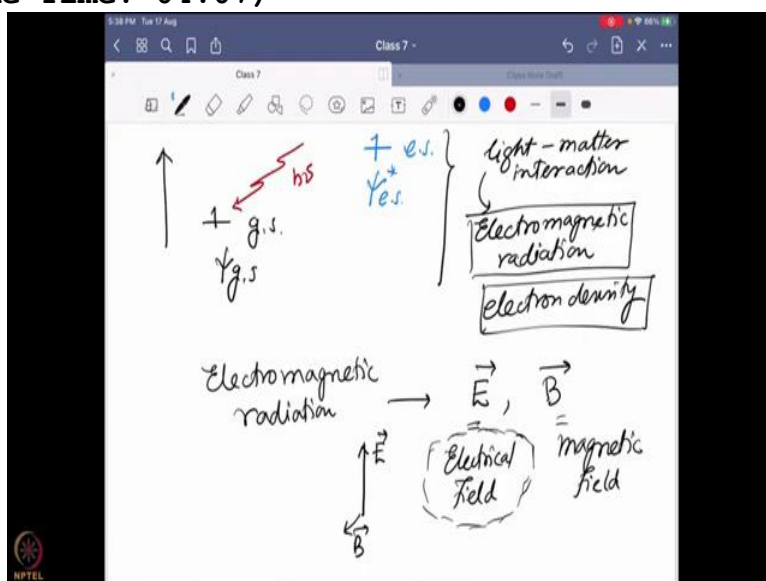 5:38 PM Tue 17 Aug
66%
Class 7
Class 7
Class Note Draft
hν
e.s.
Ψ*e.s.
g.s.
Ψg.s
light-matter
interaction
Electromagnetic
radiation
electron density
Electromagnetic
radiation
E, B
Electrical
Field
magnetic
field
E
B
NPTEL